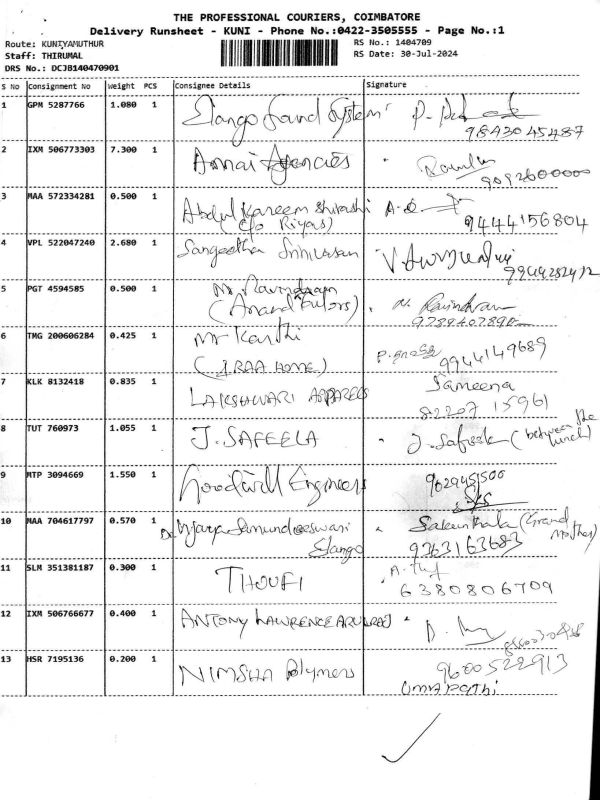 THE PROFESSIONAL COURIERS, COIMBATORE
Delivery Runsheet - KUNI - Phone No.:0422-3505555 - Page No.:1
Route: KUNIYAMUTHUR RS No.: 1404709
Staff: THIRUMAL RS Date: 30-Jul-2024
DRS No.: DCJB140470901
S Consignment No Weight PCS Consignee Details Signature
1 GPM 5287766 1.080 1 Elango Sound System
9843045487
2 IXM 506773303 7.300 1 Annai Agencies
9092600000
3 MAA 572334281 0.500 1 Abdul Kareem Shirashi
(c/o Riyas) 9444156804
4 VPL 522047240 2.680 1 Sangeetha Srinivasan
5 PGT 4594585 0.500 1 Mr. Ravindran N. Ravindran
(Anand Tailors)
6 TMG 200606284 0.425 1 Mr Karthi
(IRAA HOME) 9944149689
7 KLK 8132418 0.835 1 LAKSHWARI APPARELS Sameena
82207 15961
8 TUT 760973 1.055 1 J. SAFEELA J. Safeela (between the lunch)
9 MTP 3094669 1.550 1 Goodwill Engineers 9629451500
10 MAA 704617797 0.570 1 Dr. Vijaya Samundeeswari Sakunthala (Grand Mother)
Elango 9363163683
11 SLM 351381187 0.300 1 THOUFI
6380806709
12 IXM 506766677 0.400 1 ANTONY LAWRENCE ARULRAJ
13 HSR 7195136 0.200 1 NIMSHA Polymers 9600522913
UMAPATHI